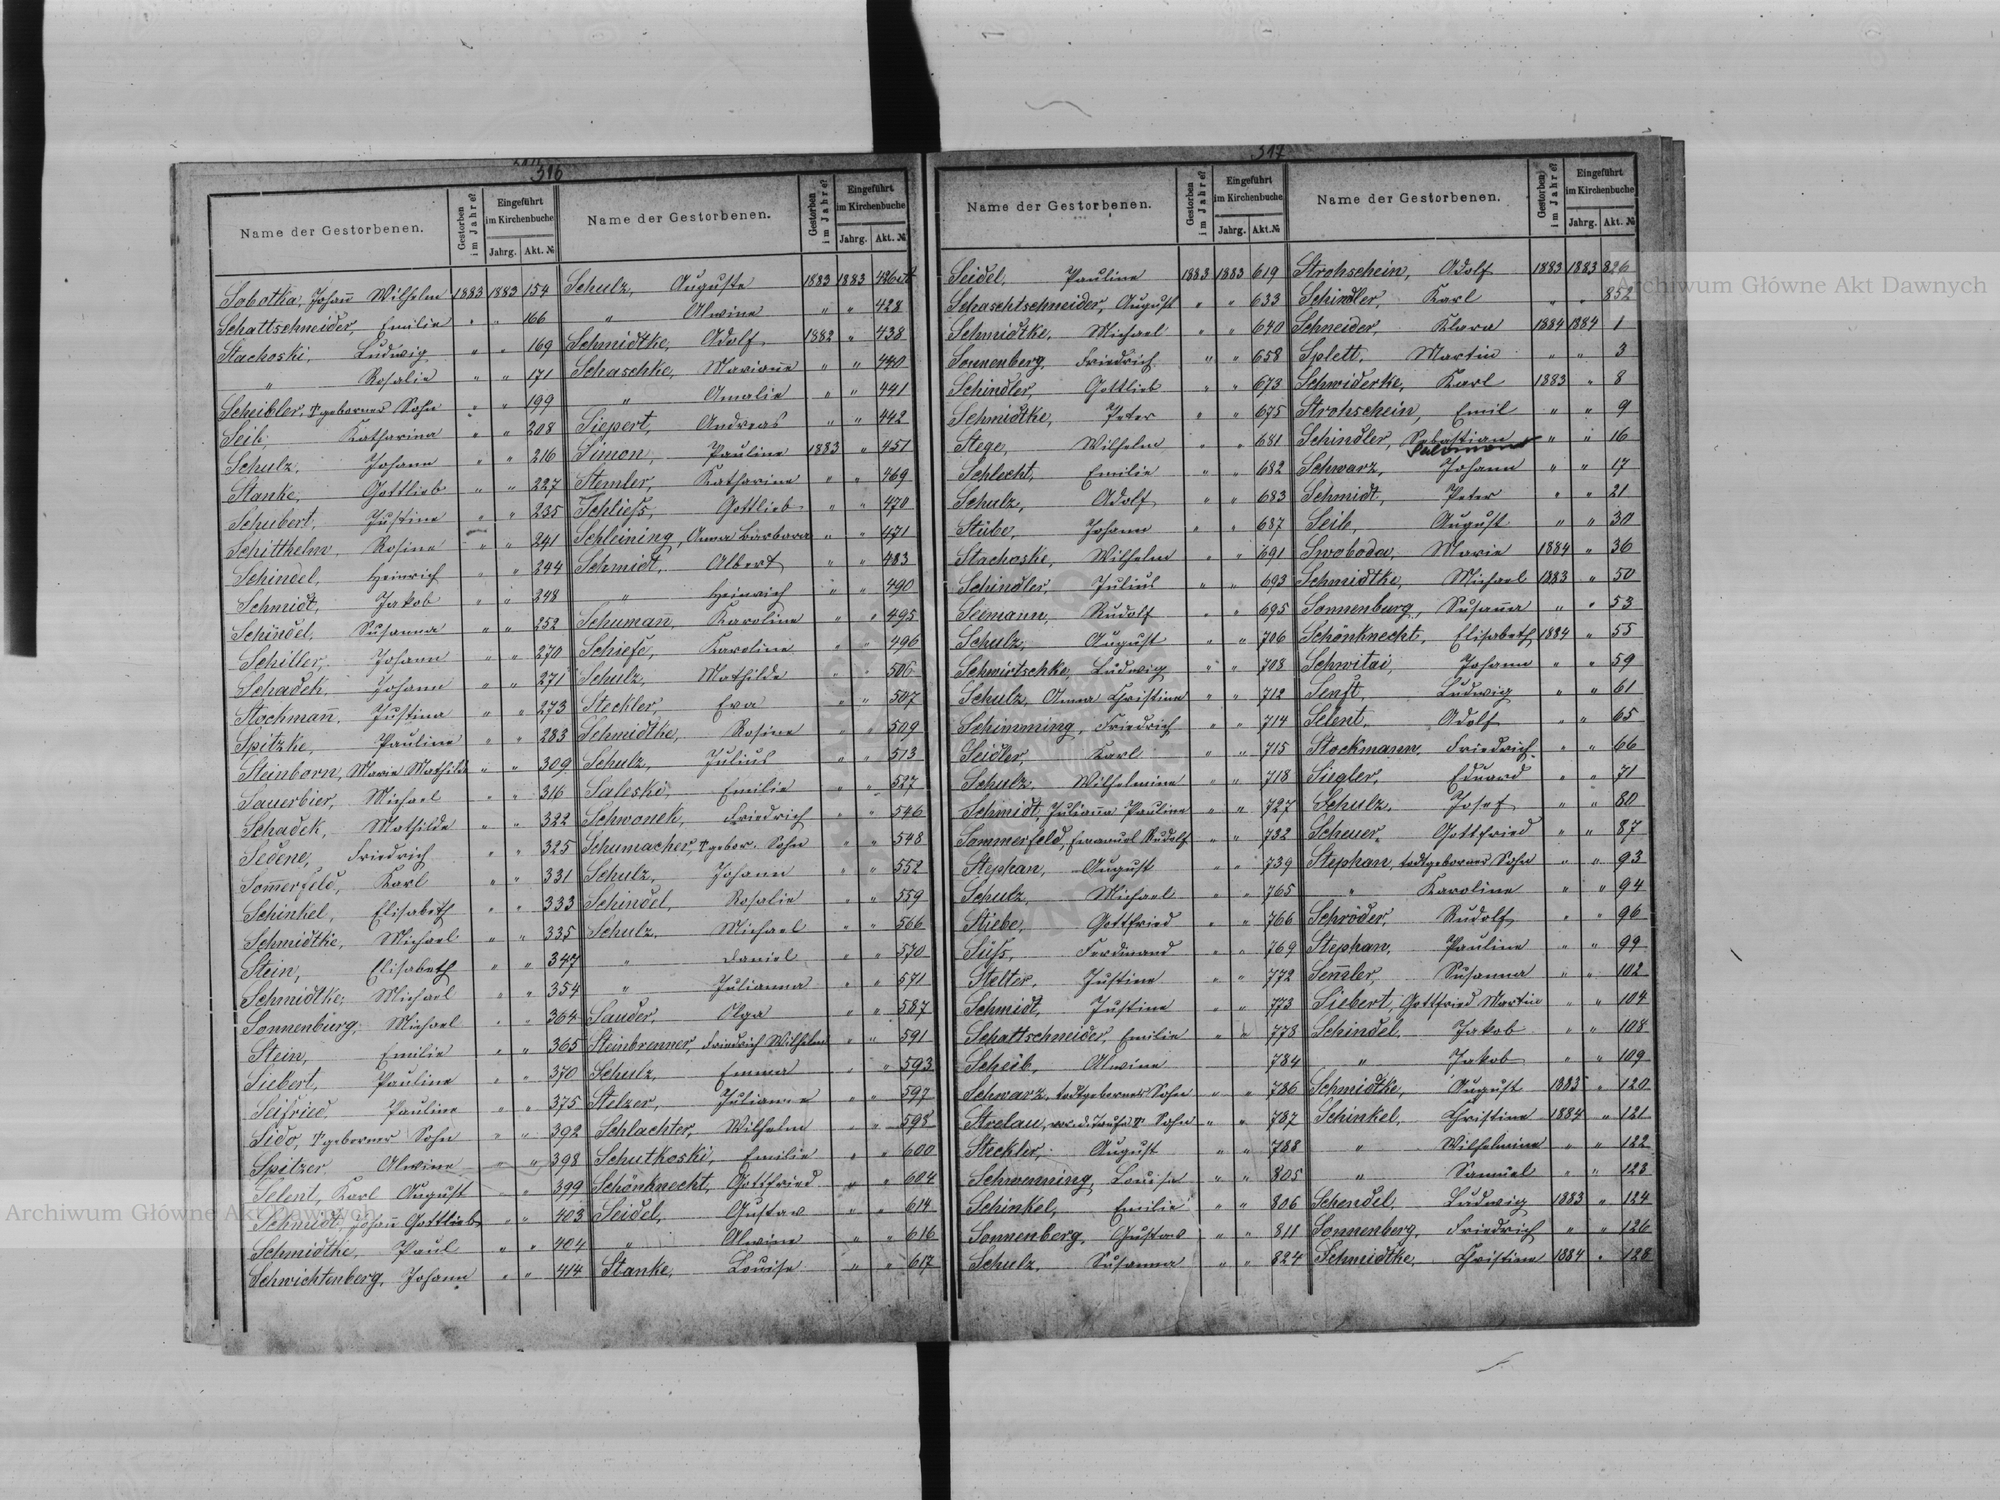 316
Name der Gestorbenen. Gestorben im Jahre? Eingeführt im Kirchenbuche Jahrg. Akt. №
Sobotka, Johañ Wilhelm 1883 1883 154
Schattschneider, Emilie " " 166
Stachoski, Ludwig " " 169
" Rosalie " " 171
Scheibler, geborner Sohn " " 199
Seib, Katharina " " 208
Schulz, Johann " " 216
Stanke, Gottlieb " " 227
Schubert, Justine " " 235
Schitthelm, Rosine " " 241
Schindel, Heinrich " " 244
Schmidt, Jakob " " 248
Schindel, Susanna " " 252
Schiller, Johann " " 270
Schadek, Johann " " 271
Stockmañ, Justina " " 273
Spitzke, Pauline " " 283
Steinborn, Marie Mathilde " " 309
Sauerbier, Michael " " 316
Schadek, Mathilde " " 322
Friedrich " " 325
Somerfeld, Karl " " 331
Schinkel, Elisabeth " " 333
Schmidtke, Michael " " 335
Stein, Elisabeth " " 347
Schmidtke, Michael " " 354
Sonnenburg, Michael " " 364
Stein, Emilie " " 365
Siebert, Pauline " " 370
Seifried, Pauline " " 375
Sido, geborner Sohn " " 392
Spitzer, Alwine " " 398
Selent, Karl August " " 399
Schmidt, Johañ Gottlieb " " 403
Schmidtke, Paul " " 404
Schwichtenberg, Johann " " 414
Name der Gestorbenen. Gestorben im Jahre? Eingeführt im Kirchenbuche Jahrg. Akt. №
Schulz, Auguste 1883 1883
" Alwine " " 428
Schmidtke, Adolf 1882 " 438
Schaschke, Mariañe " " 440
" Amalie " " 441
Siepert, Andreas " " 442
Simon, Pauline 1883 " 451
Stemler, Katharine " " 469
Schliefs, Gottlieb " " 470
Schleining, Anna Barbara " " 471
Schmidt, Albert " " 483
" Heinrich " " 490
Schumañ, Karoline " " 495
Schiefe, Karoline " " 496
Schulz, Mathilde " " 506
Steckler, Eva " " 507
Schmidtke, Rosine " " 509
Schulz, Julius " " 513
Saleski, Emilie " " 527
Schwonek, Friedrich " " 546
Schumacher, gebor. Sohn " " 548
Schulz, Johann " " 552
Schindel, Rosalie " " 559
Schulz, Michael " " 566
" Daniel " " 570
" Julianna " " 571
Sauder, Olga " " 587
Steinbrenner, Friedrich Wilhelm " " 591
Schulz, Emma " " 593
Stelzer, Julianne " " 597
Schlachter, Wilhelm " " 598
Schutkoski, Emilie " " 600
Schönknecht, Gottfried " " 604
Seidel, Gustav " " 614
" Alwine " " 616
Stanke, Louise " " 617
317
Name der Gestorbenen. Gestorben im Jahre? Eingeführt im Kirchenbuche Jahrg. Akt. №
Seidel, Pauline 1883 1883 619
Schaschtschneider, August " " 633
Schmidtke, Michael " " 640
Sonnenberg, Friedrich " " 658
Schindler, Gottlieb " " 673
Schmidtke, Peter " " 675
Stege, Wilhelm " " 681
Schlecht, Emilie " " 682
Schulz, Adolf " " 683
Stübe, Johann " " 687
Stachoske, Wilhelm " " 691
Schindler, Julius " " 693
Seemann, Rudolf " " 695
Schulz, August " " 706
Schwirtschke, Ludwig " " 708
Schulz, Anna Christine " " 712
Schimming, Friedrich " " 714
Seidler, Karl " " 715
Schulz, Wilhelmine " " 718
Schmidt, Juliañe Pauline " " 727
Sommerfeld, Emanuel Rudolf " " 732
Stephan, August " " 739
Schulz, Michael " " 765
Stiebe, Gottfried " " 766
Süfs, Ferdinand " " 769
Stelter, Justine " " 772
Schmidt, Justine " " 773
Schattschneider, Emilie " " 778
Scheib, Alwine 784
Schwarz, todtgeborner Sohn " " 786
Strelau, Sohn " " 787
Steckler, August " " 788
Schwenning, Louise " " 805
Schinkel, Emilie " " 806
Sonnenberg, Gustav " " 811
Schulz, Susanna " " 824
Name der Gestorbenen. Gestorben im Jahre? Eingeführt im Kirchenbuche Jahrg. Akt. №
Strohschein, Adolf 1883 1883 826
Schindler, Karl " " 852
Schneider, Klara 1884 1884 1
Splett, Martin " " 3
Schwiderke, Karl 1883 " 8
Strohschein, Emil " " 9
Schindler, Sebastian " " 16
Schwarz, Johann " " 17
Schmidt, Peter " " 21
Seib, August " " 30
Swoboda, Marie 1884 " 36
Schmidtke, Michael 1883 " 50
Sonnenburg, Susañna " " 53
Schönknecht, Elisabeth 1884 " 55
Schwitai, Johann " " 59
Senft, Ludwig " " 61
Selent, Adolf " " 65
Stockmann, Friedrich " " 66
Siegler, Eduard " " 71
Schulz, Josef " " 80
Scheuer, Gottfried " " 87
Stephan, todtgeborner Sohn " " 93
" Karoline " " 94
Schröder, Rudolf " " 96
Stephan, Pauline " " 99
Susanna " " 102
Siebert, Gottfried Martin " " 104
Schindel, Jakob " " 108
" Jakob " " 109
Schmidtke, August 1883 " 120
Schinkel, Christine 1884 " 121
" Wilhelmine " " 122
" Samuel " " 123
Schendel, Ludwig 1883 " 124
Sonnenberg, Friedrich " " 126
Schmidtke, Christine 1884 " 128
Archiwum Główne Akt Dawnych
Archiwum Główne Akt Dawnych